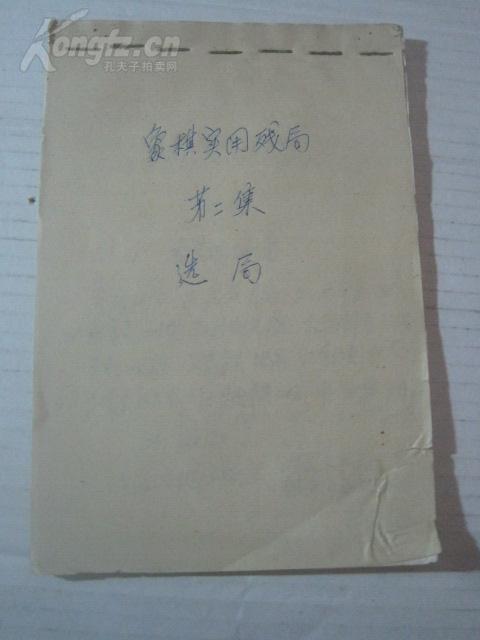 Kongfz.cn
孔夫子拍卖网
象棋实用残局
第二集
选局